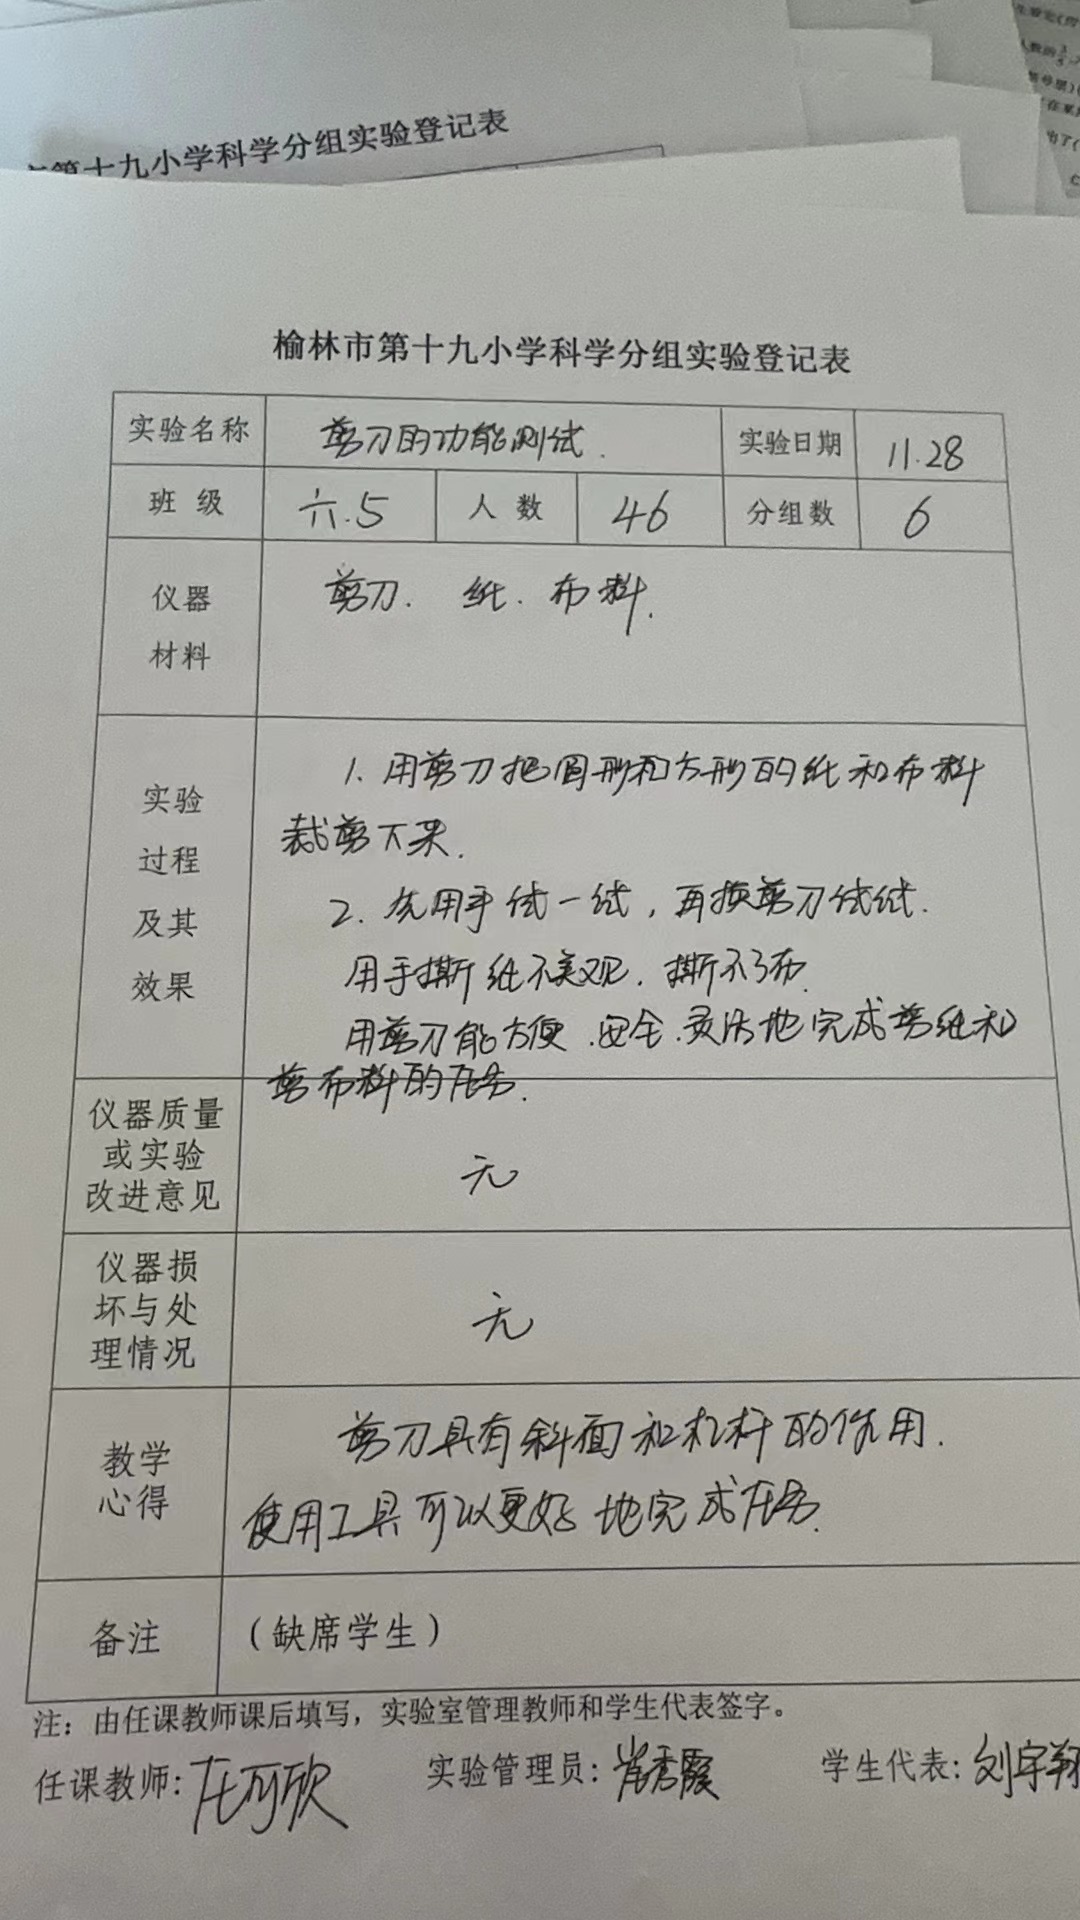 第十九小学科学分组实验登记表
榆林市第十九小学科学分组实验登记表
实验名称 剪刀的功能测试. 实验日期 11.28
班 级 六.5 人 数 46 分组数 6
仪器
材料
剪刀. 纸. 布料.
实验
过程
及其
效果
1. 用剪刀把圆形和方形的纸和布料
裁剪下来.
2. 先用手试一试, 再换剪刀试试.
用手撕纸不美观. 撕不了布.
用剪刀能方便.安全.灵活地完成剪纸和
剪布料的任务.
仪器质量
或实验
改进意见
无
仪器损
坏与处
理情况
无
教学
心得
剪刀具有斜面和杠杆的作用.
使用工具可以更好地完成任务.
备注 (缺席学生)
注：由任课教师课后填写，实验室管理教师和学生代表签字。
任课教师: 可欣 实验管理员: 秀霞 学生代表: 刘宇翔